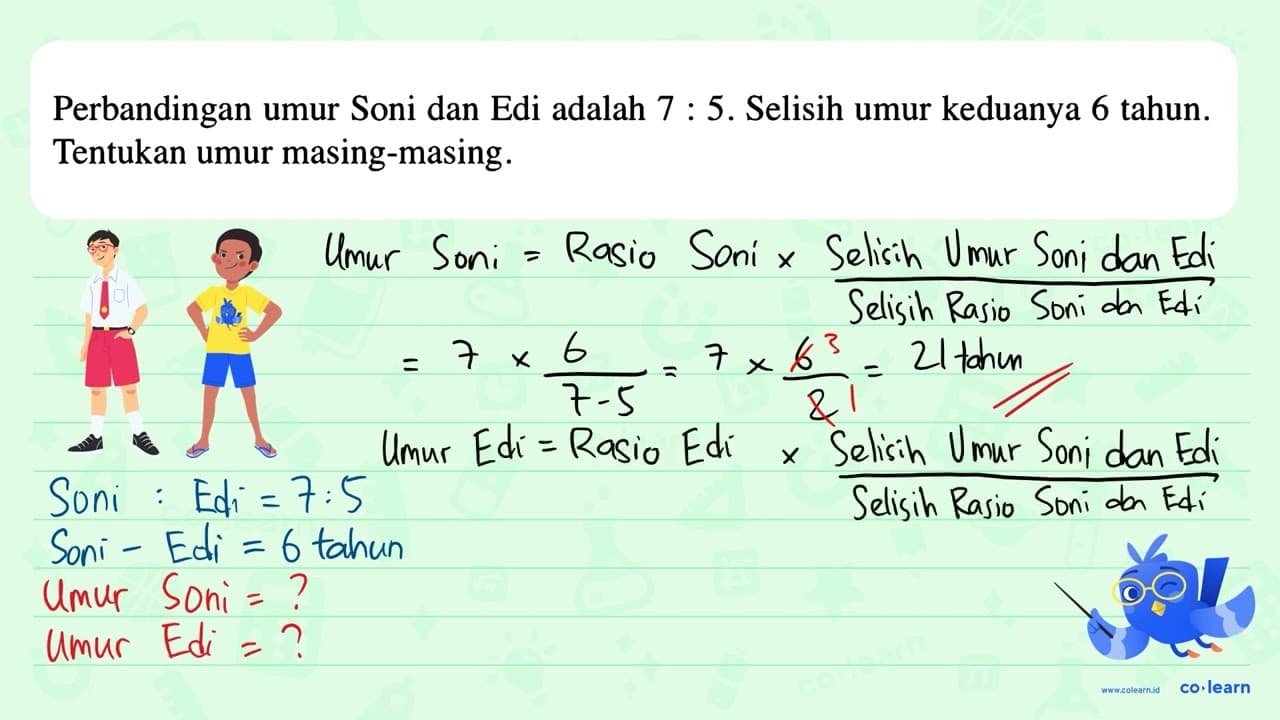 Perbandingan umur Soni dan Edi adalah 7 : 5. Selisih umur keduanya 6 tahun.
Tentukan umur masing-masing.
Umur Soni = Rasio Soni × Selisih Umur Soni dan Edi
Selisih Rasio Soni dan Edi
= 7 × 6 = 7 × 6 3 = 21 tahun
7-5 2 1
Umur Edi = Rasio Edi × Selisih Umur Soni dan Edi
Selisih Rasio Soni dan Edi
Soni : Edi = 7:5
Soni - Edi = 6 tahun
Umur Soni = ?
Umur Edi = ?
www.colearn.id co·learn